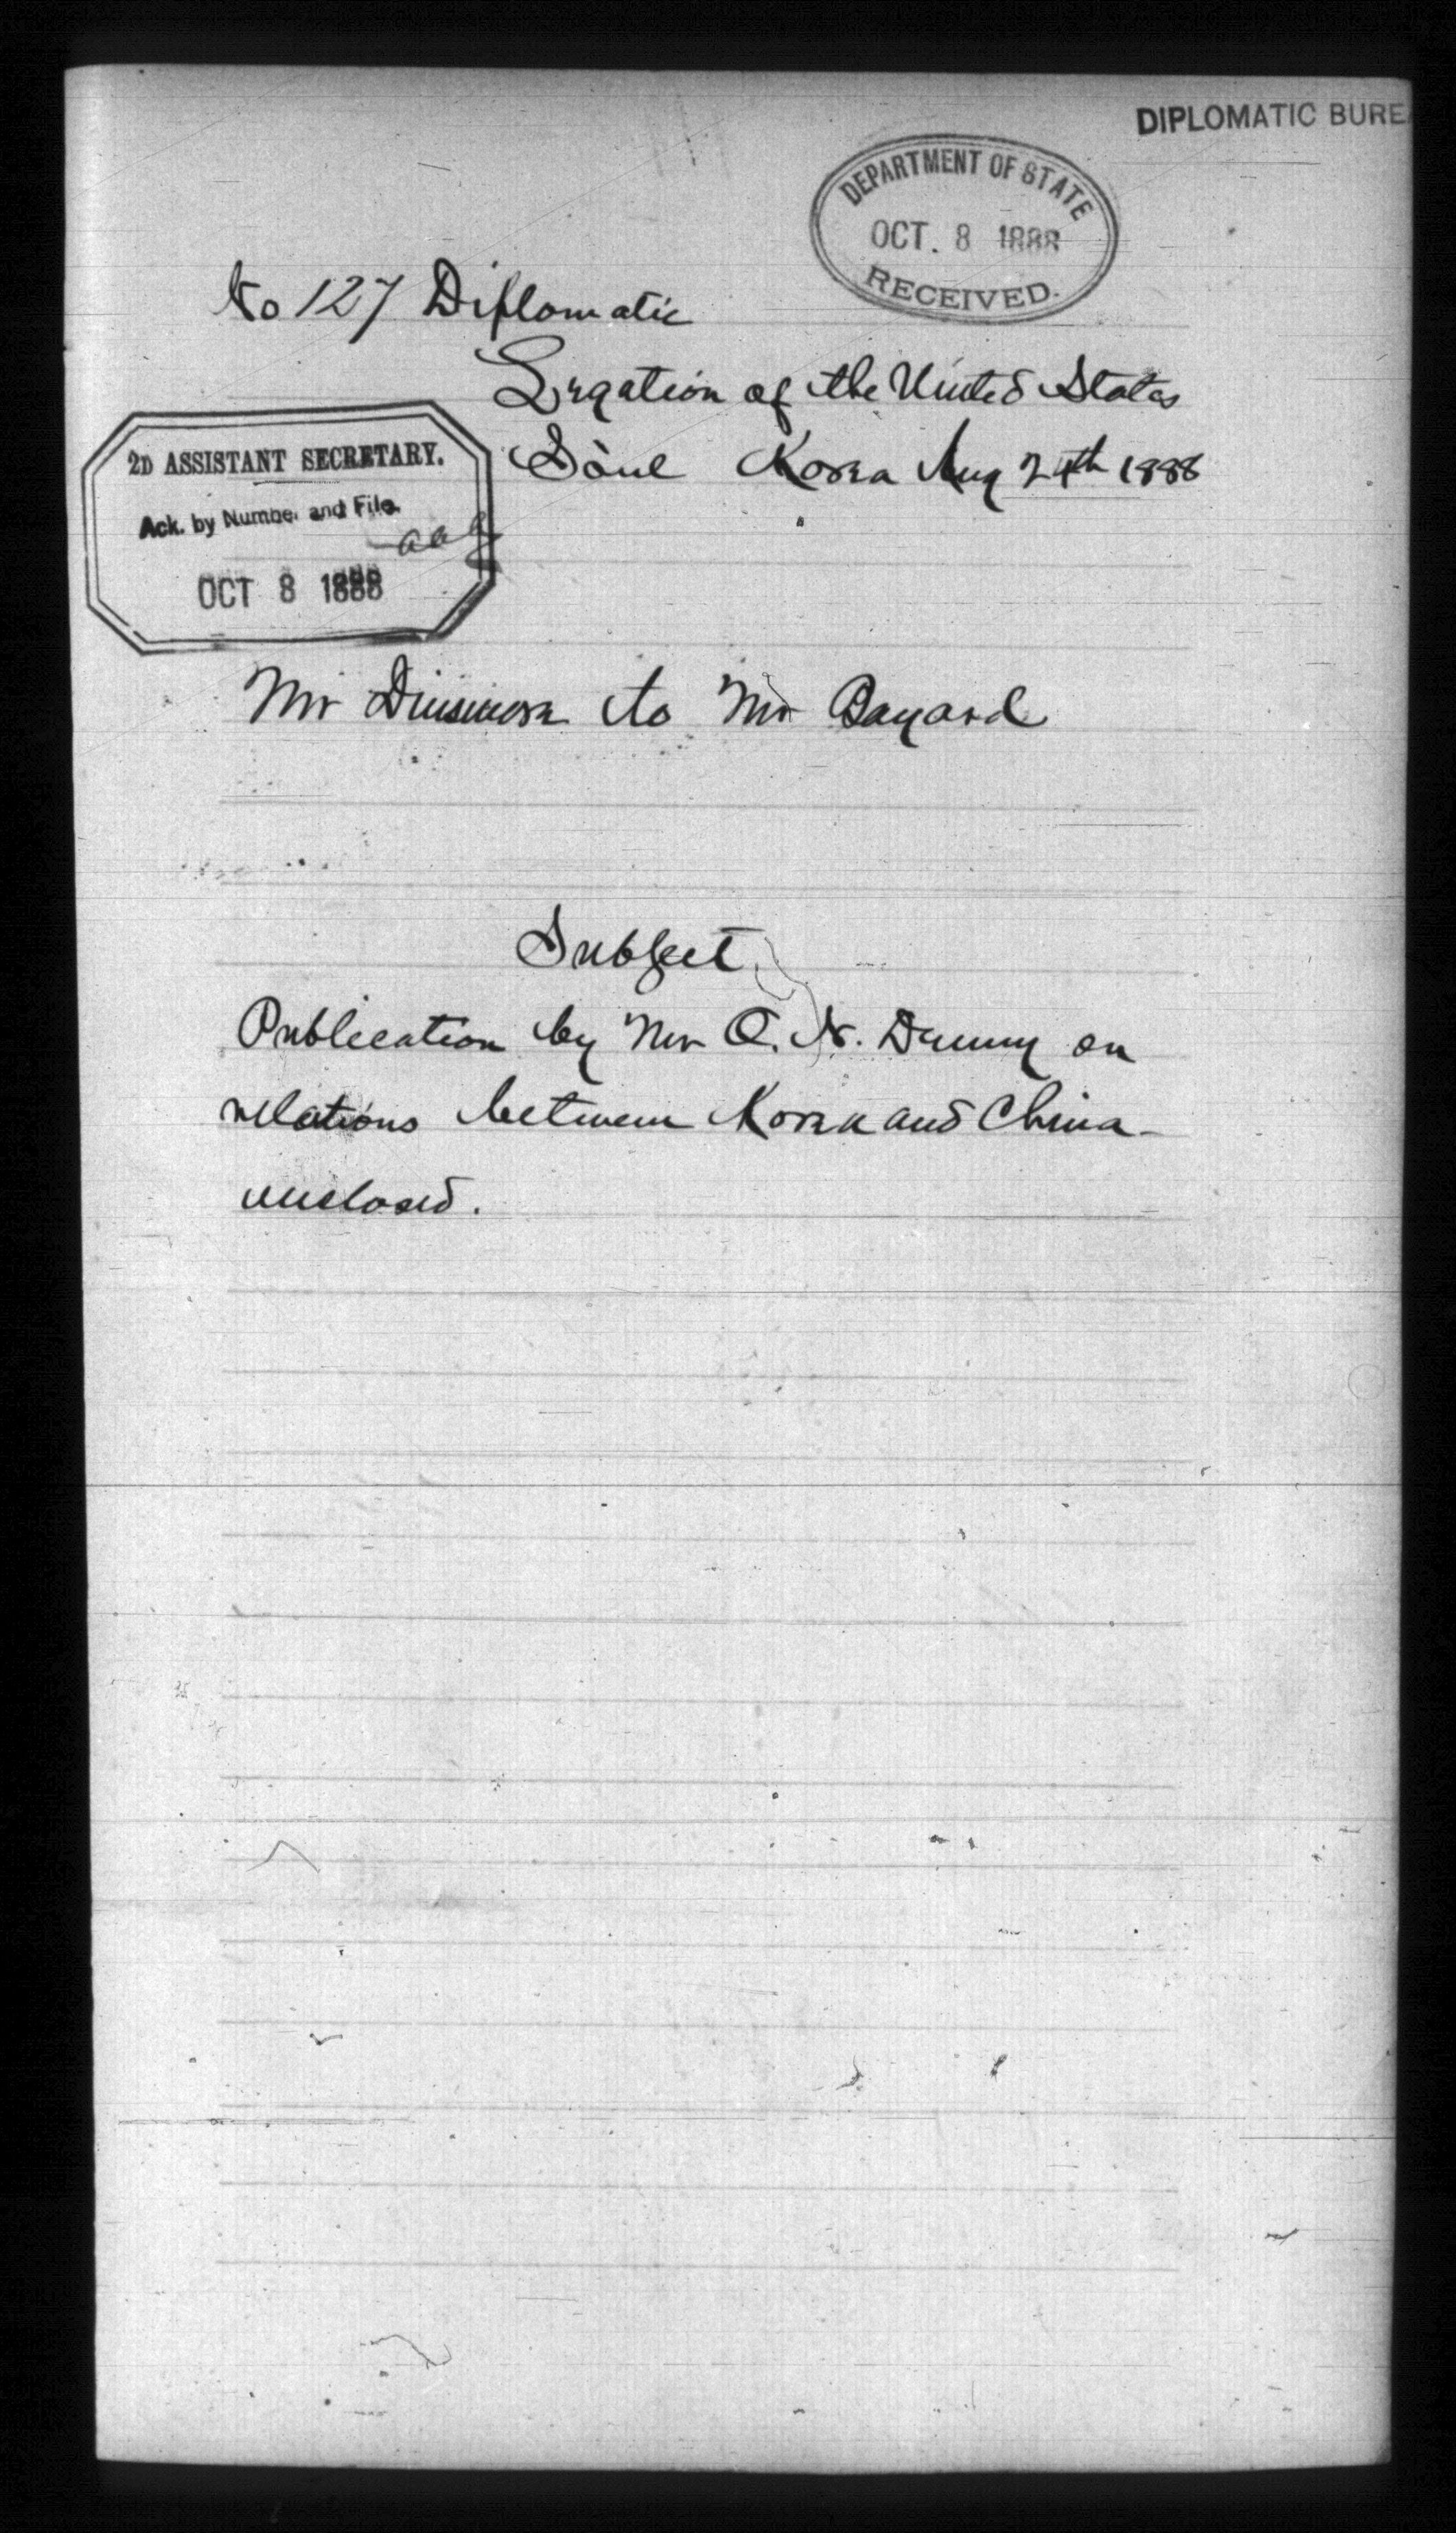 DIPLOMATIC BURE
DEPARTMENT OF STATE
OCT. 8 1888
RECEIVED.
No 127 Diplomatic
Legation of the United States
Sòul Korea Aug 24th 1888
2D ASSISTANT SECRETARY.
Ack. by Number and File.
OCT 8 1888
Mr Dinsmore to Mr Bayard
Subject
Publication by Mr O. N. Denny on
relations between Korea and China-
enclosed.